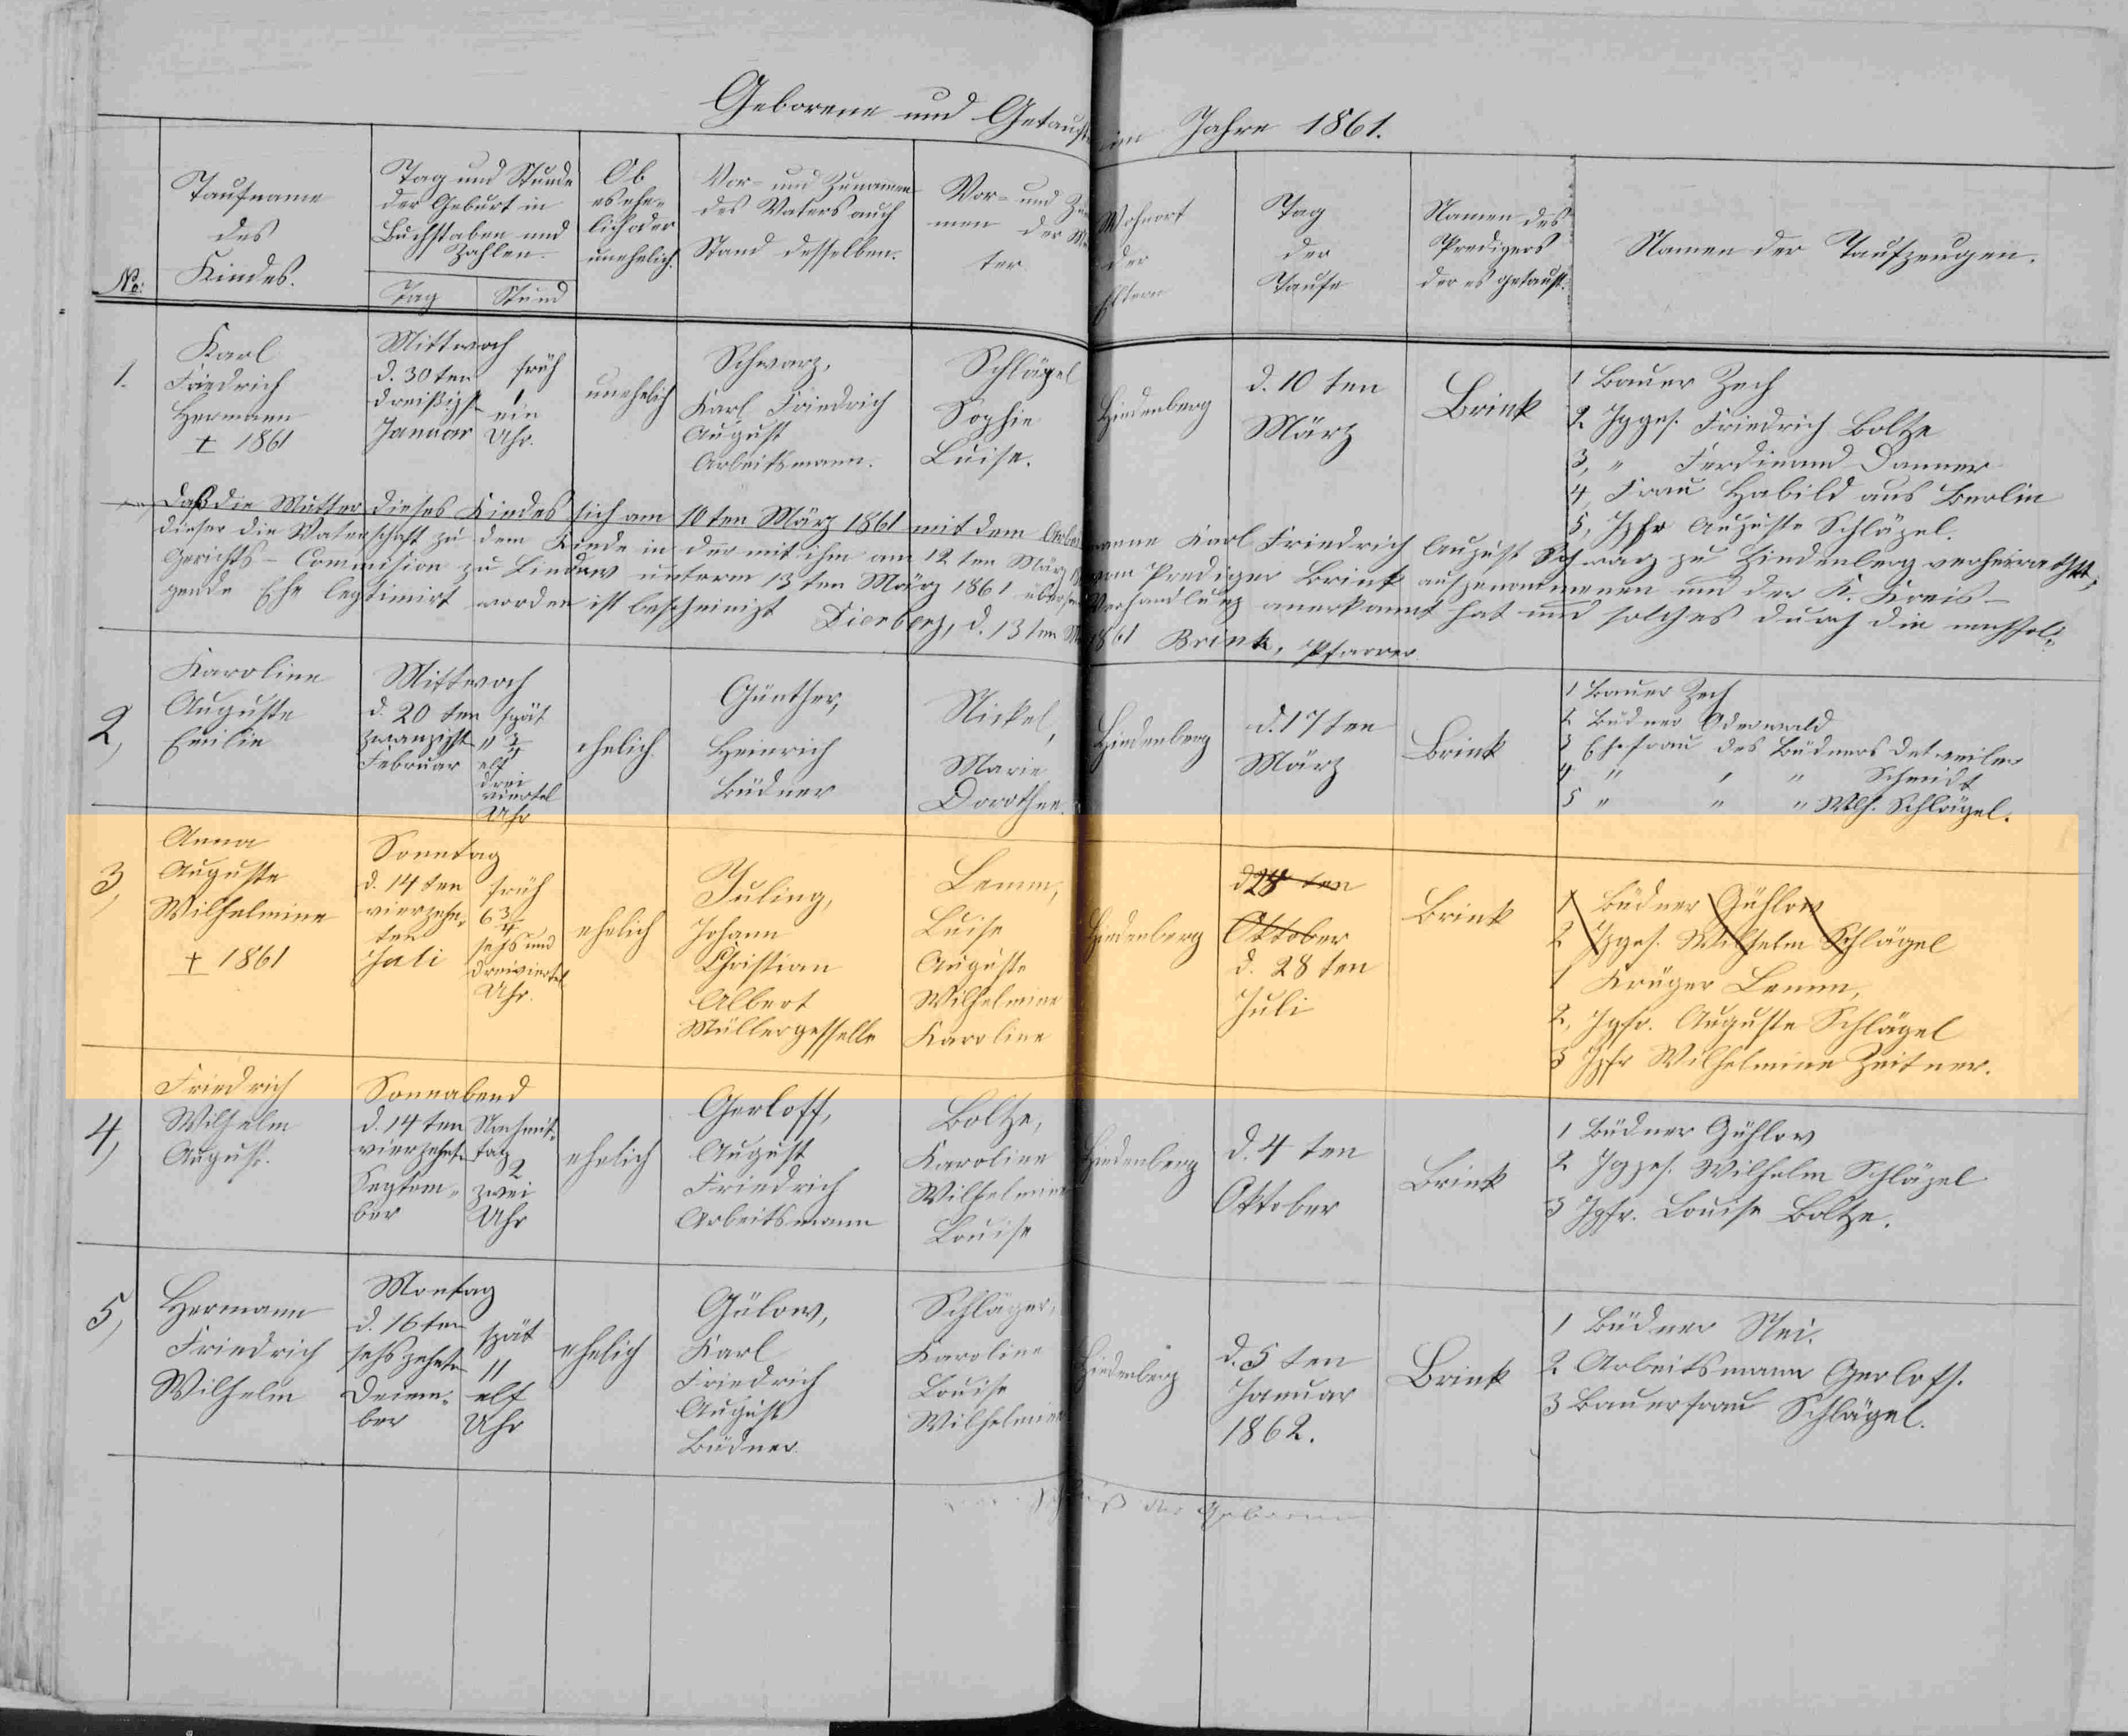 Geborene und Getaufte im Jahre 1861.
No:
Taufname
des
Kindes.
Tag und Stunde
der Geburt in
Buchstaben und
Zahlen.
Tag
Stund
Ob
es ehe-
lich oder
unehelich.
Vor- und Zunamen
des Vaters auch
Stand desselben.
Vor- und Zu
men der Mu
ter
Wohnort
der
Eltern
Tag
der
Taufe
Namen des
Predigers
der es getauft.
Namen der Taufzeugen.
1.
Karl
Friedrich
Hermann
† 1861
Mittwoch
d. 30 ten
dreißigst
Januar
früh
1
ein
Uhr.
unehelich
Schwarz,
Karl Friedrich
August
Arbeitsmann.
Schlägel
Sophie
Luise.
Hindenberg
d. 10 ten
März
Brink
1 Bauer Zech
2 Jgges. Friedrich Boltze
3, " Ferdinand Danner
4, Frau Habild aus Berlin
5, Jgfr Auguste Schlägel.
Daß die Mutter dieses Kindes sich am 10 ten März 1861 mit dem Arbei manne Karl Friedrich August Schwarz zu Hindenberg verheirathet,
dieser die Vaterschaft zu dem Kinde in der mit ihm am 12 ten März vom Prediger Brink aufgenommenen und der K. Kreis-
Gerichts-Commision zu Lindow unterm 13 ten März 1861 Verhandlung anerkannt hat und solches durch die nachfol-
gende Ehe legtimirt worden ist bescheinigt Dierberg, d. 13 ten M 1861 Brink, Pfarrer
2,
Karoline
Auguste
Emilie
Mittwoch
d. 20 ten
zwanzigst
Februar
spät
11 3/4
elf
drei
viertel
Uhr
ehelich
Günther,
Heinrich
Büdner
Nickel,
Marie
Dorothee.
Hindenberg
d. 17 ten
März
Brink
1 Bauer Zech
2 Büdner Oderwald
3 Ehefrau des Büdners Detweiler
4 " " " Schmidt
5 " " " Wlh. Schlägel.
3,
Anna
Auguste
Wilhelmine
† 1861
Sonntag
d. 14 ten
vierzehn-
ten
Juli
früh
6 3/4
sechs und
dreiviertel
Uhr.
ehelich
Juling,
Johann
Christian
Albert
Müllergesselle
Lemm,
Luise
Auguste
Wilhelmine
Karoline
Hindenberg
d 28 ten
Oktober
d. 28 ten
Juli
Brink
1 Büdner Gühlow
2 Jgges. Wilhelm Schlägel
1 Krüger Lemm,
2, Jgfr. Auguste Schlägel
3 Jgfr Wilhelmine Zeitner.
4,
Friedrich
Wilhelm
August.
Sonnabend
d. 14 ten
vierzehnt
Septem-
ber
Nachmit-
tag
2
zwei
Uhr
ehelich
Gerloff,
August
Friedrich
Arbeitsmann
Boltze,
Karoline
Wilhelmine
Louise
Hindenberg
d. 4 ten
Oktober
Brink
1 Büdner Gühlow
2 Jgges. Wilhelm Schlägel
3 Jgfr. Louise Boltze.
5,
Hermann
Friedrich
Wilhelm
Montag
d. 16 ten
sechszehnt
Decem-
ber
spät
11
elf
Uhr
ehelich
Gülow,
Karl
Friedrich
August
Büdner.
Schläger,
Karoline
Louise
Wilhelmine
Hindenberg
d. 5 ten
Januar
1862.
Brink
1 Büdner Nei.
2 Arbeitsmann Gerloff.
3 Bauerfrau Schlägel.
der Geborenen